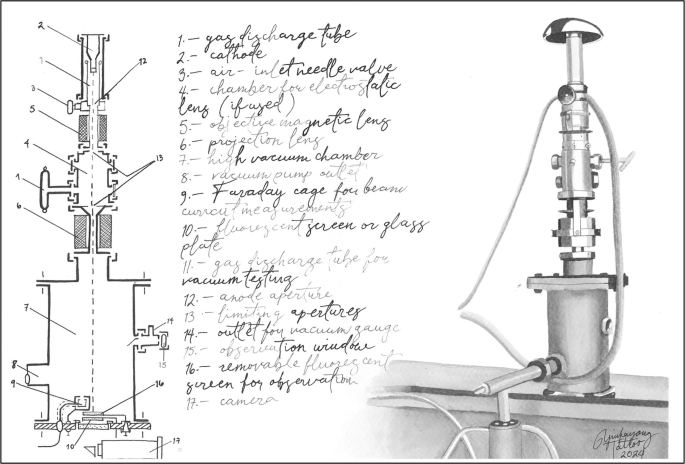 1.- gas discharge tube
2.- cathode
3.- air-inlet needle valve
4.- chamber for electrostatic
lens (if used)
5.- objective magnetic lens
6.- projection lens
7.- high vacuum chamber
8.- vacuum pump outlet
9.- Faraday cage for beam
current measurements
10.- fluorescent screen or glass
plate
11.- gas discharge tube for
vacuum testing
12.- anode aperture
13 - limiting apertures
14.- outlet for vacuum gauge
15.- observation window
16.- removable fluorescent
screen for observation
17.- camera
2
1
12
3
5
4
13
1
6
7
14
15
8
9
16
10
17
Tattoo
2024